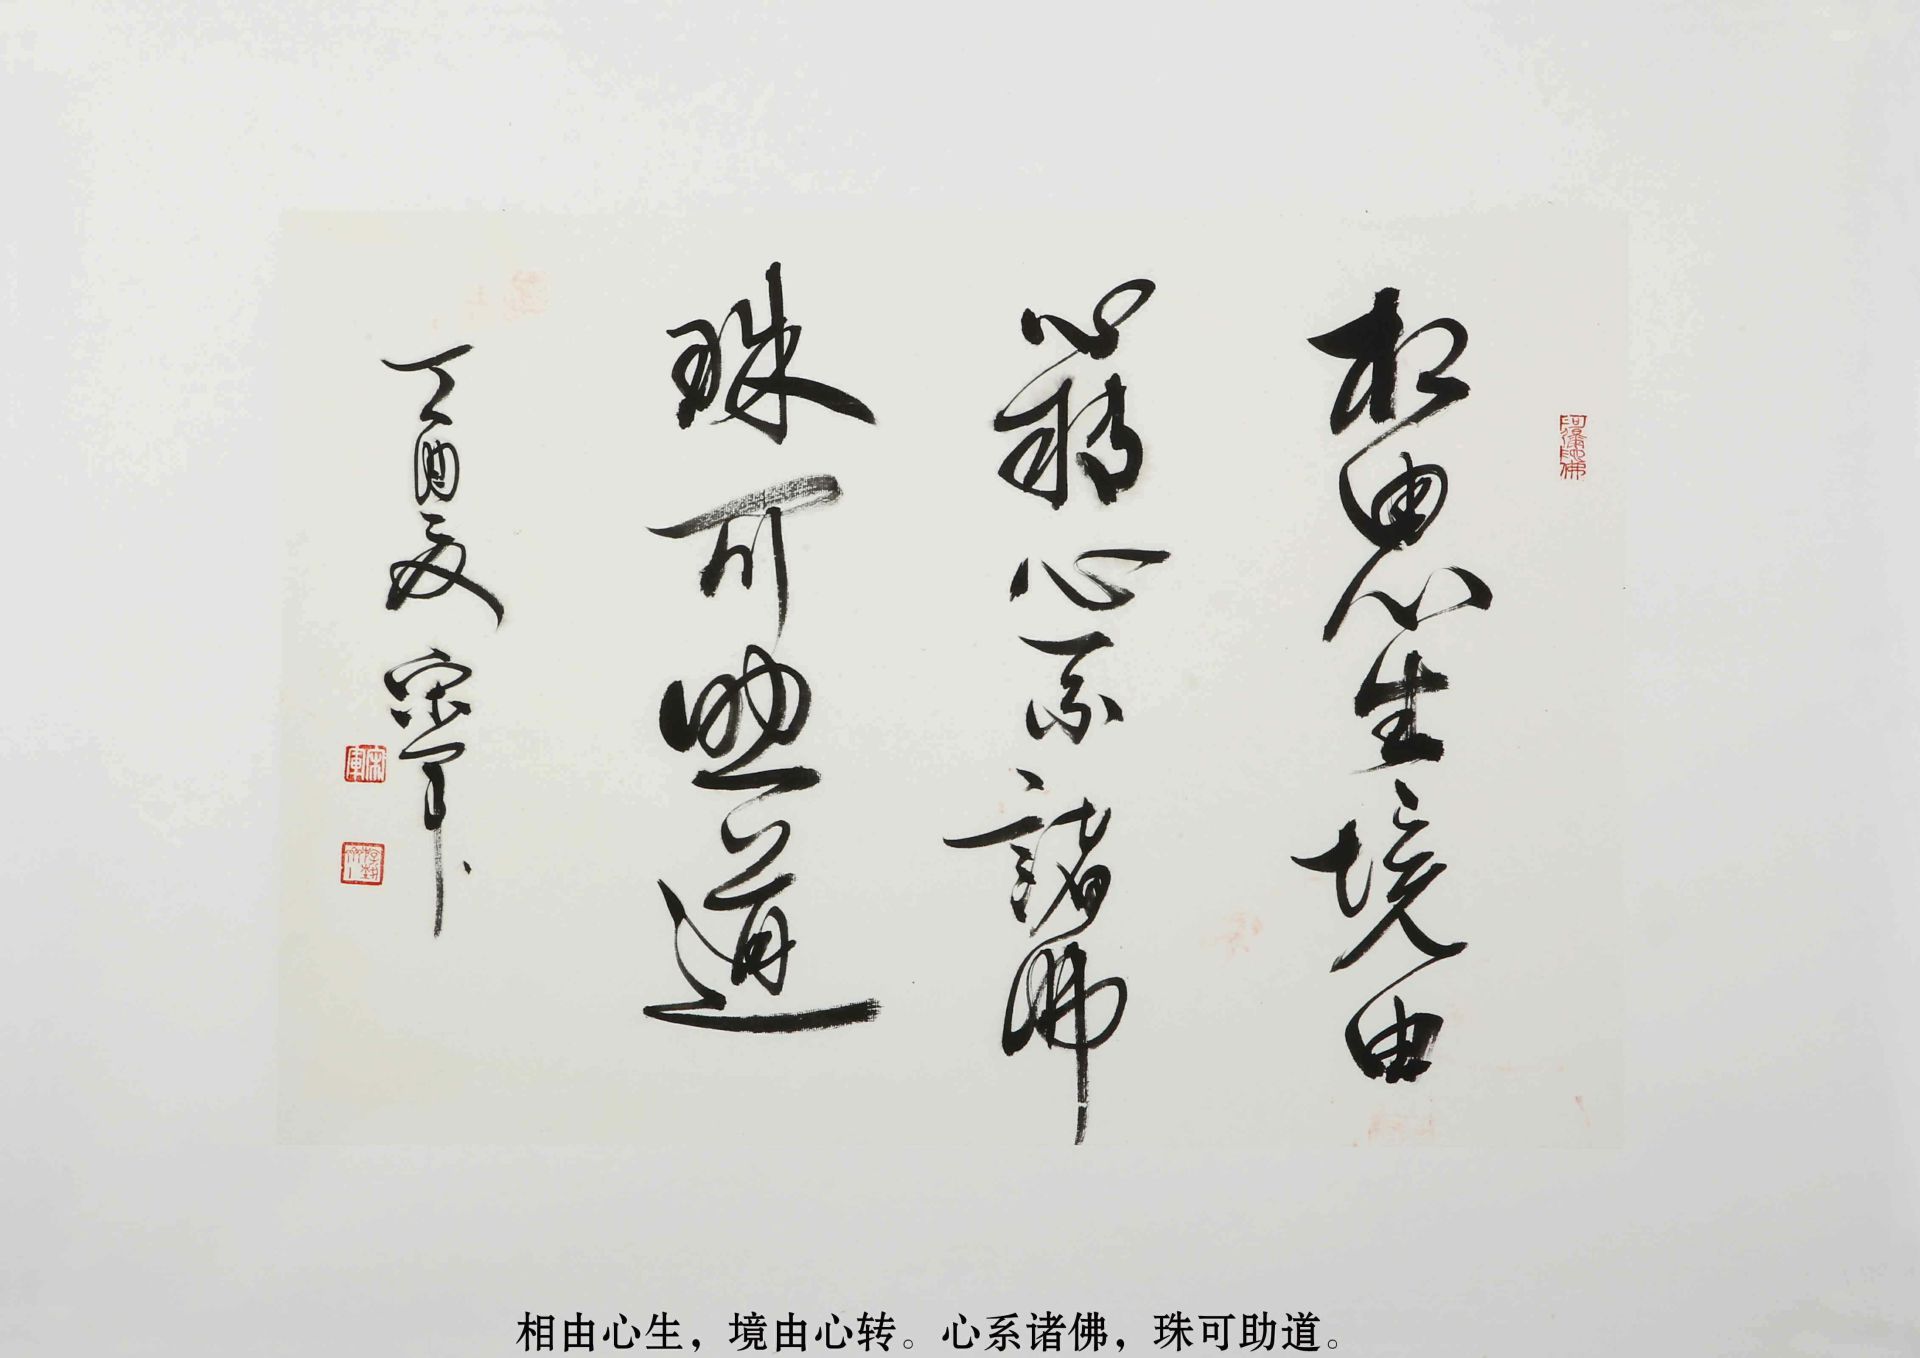 相由心生境由
心轉心系諸佛
珠可助道
丁酉夏 宋軍
阿彌陀佛
宋軍
相由心生，境由心转。心系诸佛，珠可助道。